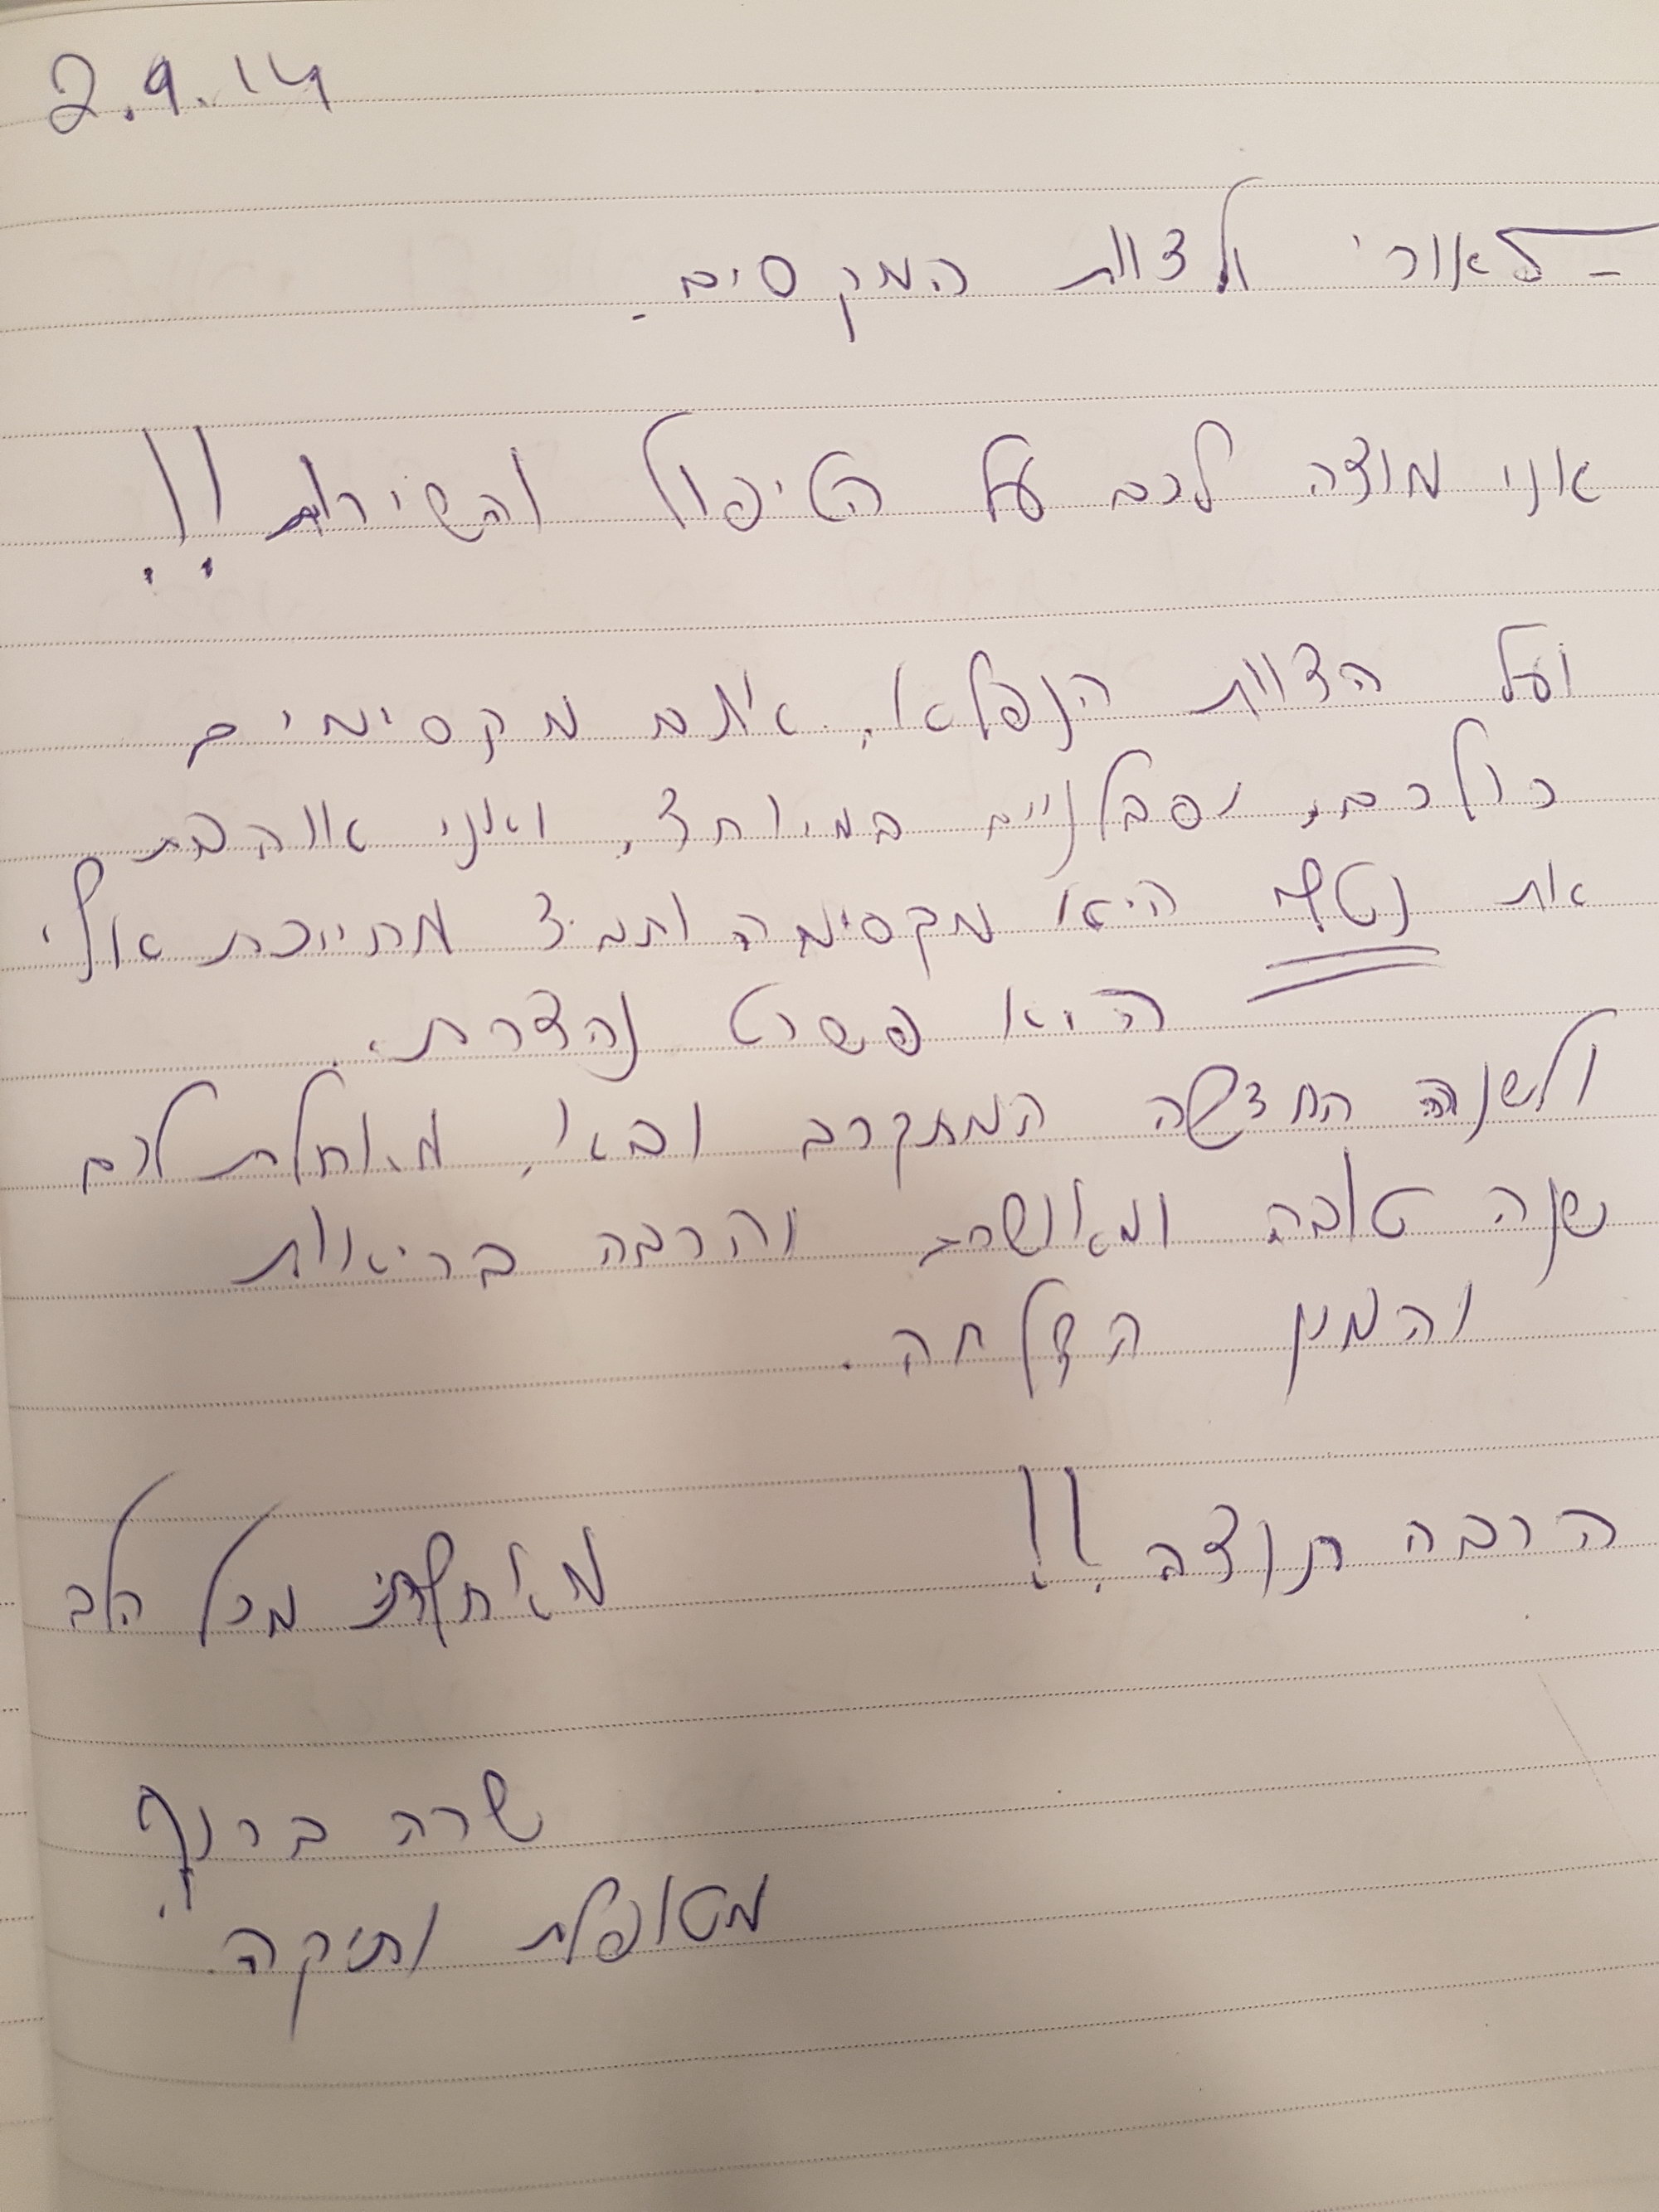 2.9.14
לאורי ולצוות המקסים.
אני מודה לכם על הטיפול והשירות!!
ועל הצוות הנפלא, אתם מקסימים
כולכם, וסבלניים במיוחד, ואני אוהבת
את היא מקסימה ותמיד מחייכת אלי
היא פשוט נהדרת.
ולשנה החדשה המתקרב ובא, מאחלת לכם
שנה טובה ומאושרת והרבה בריאות
והמון הצלחה.
הרבה תודה!!
מכל הלב
שרה
מטופלת ותיקה.